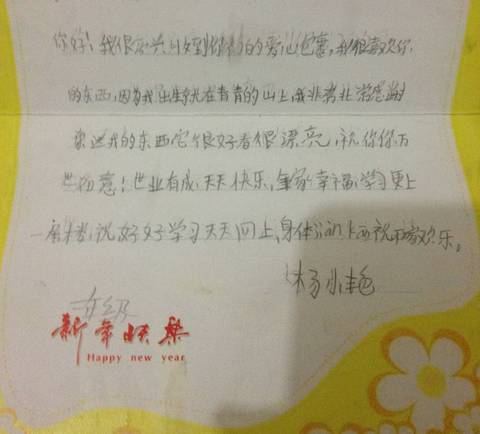 你好！我很高兴收到你们的爱心包裹，我很喜欢你
的东西，因为我出生就在青青的山上，我非常非常感谢
送我的东西它很好看很漂亮，祝你你万
如意！业有成，天天快乐，全家幸福学习更上
一层楼，祝好好学习天天向上，身体 欢乐。
杨小艳
年级
新年快乐
Happy new year